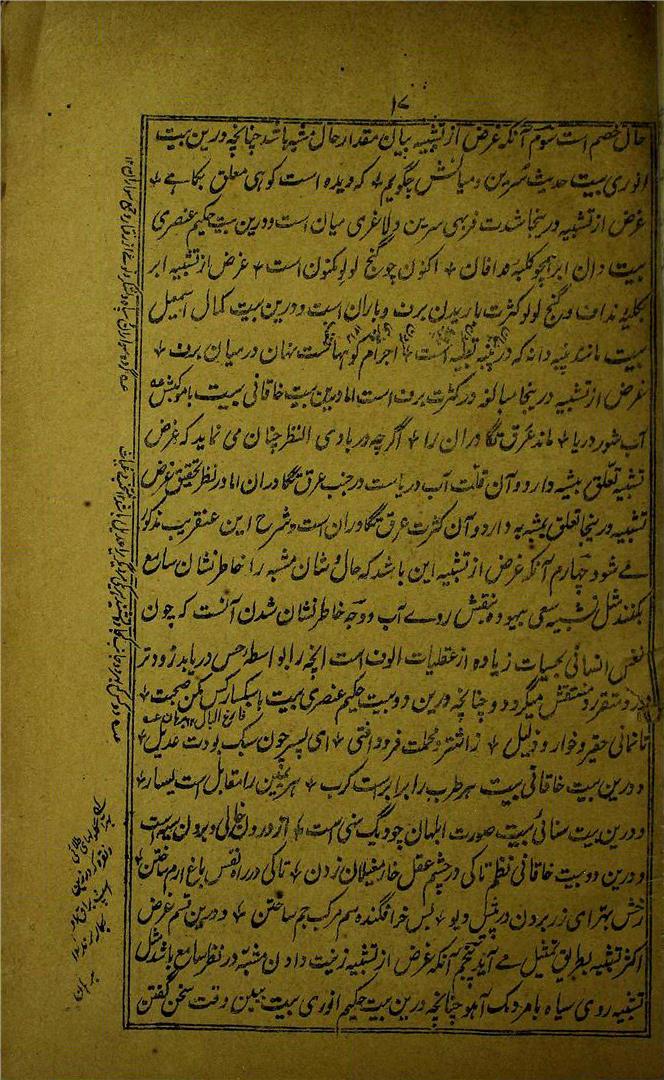 ۱۷
حال خصم است سوم آنکه غرض از تشبیه بیان مقدار حال مشبه باشد چنانچه درین بیت
انوری بیت حدیث سرین و میانش چگویم که دیده است کوهی معلق بکاهے
غرض از تشبیه درینجا شدت فربهی سرین و لاغری میان است و درین بیت حکیم عنصری
بیت وان ابر همچو کلبهٔ ندافان اکنون چو گنج لولو مکنون است غرض از تشبیه ابر
بکلبه نداف و گنج لولو کثرت باریدن برف و باران است و درین بیت کمال اسمعیل
بیت مانند پنبه دانه که در پنبه تعبیه است اجرام کوهها گشت نهان در میان برف
غرض از تشبیه درینجا مبالغه در کثرت برف است اما درین بیت خاقانی بیت با موکبش
آب شور دریا ماند عرق تگاوران را اگرچه در بادی النظر چنان می نماید که غرض
تشبیه تعلق بمشبه دارد و آن قلت آب دریاست در جنب عرق تگاوران اما در نظر تحقیق غرض
تشبیه درینجا تعلق بمشبه به دارد و آن کثرت عرق تگاوران است و شرح این عنقریب مذکور
مے شود چهارم آنکه غرض از تشبیه این باشد که حال و شان مشبه را خاطر نشان سامع
بکنند مثل تشبیه سعی بیهوده بنقش روے آب و وجه خاطر نشان شدن آنست که چون
نفس انسانی بحسیات زیاده از عقلیات الوف است آنچه را بواسطه حس دریابد زودتر
درو متقرر و منتقش میگردد و چنانچه درین دو بیت حکیم عنصری بیت با سبکسار کس مکن صحبت
تا نمانی حقیر و خوار و ذلیل زاشتر و محلت فرود افتی ای پسر چون سبک بودت عدیل
و درین بیت خاقانی بیت هر طرب را برابر است کرب هر یمین را مقابل است یسار
و درین بیت سنائی بیت صورت ابلهان چو دیگ تهی است از درون خالی و برون سیه است
و درین دو بیت خاقانی نظم تا کی در چشم عقل خار مغیلان زدن تا کی در راه نفس باغ ارم ساختن
رخش بهترای زر بردن در پیش دیو پس خر افگنده سم مرکب جم ساختن و درین قسم غرض
اکثر تشبیه بطریق تمثیل مے آید پنجم آنکه غرض از تشبیه زینت دادن مشبه در نظر سامع باشد مثل
تشبیه روی سیاه با مردمک آهو چنانچه درین بیت حکیم انوری بیت ببین وقت سخن گفتن